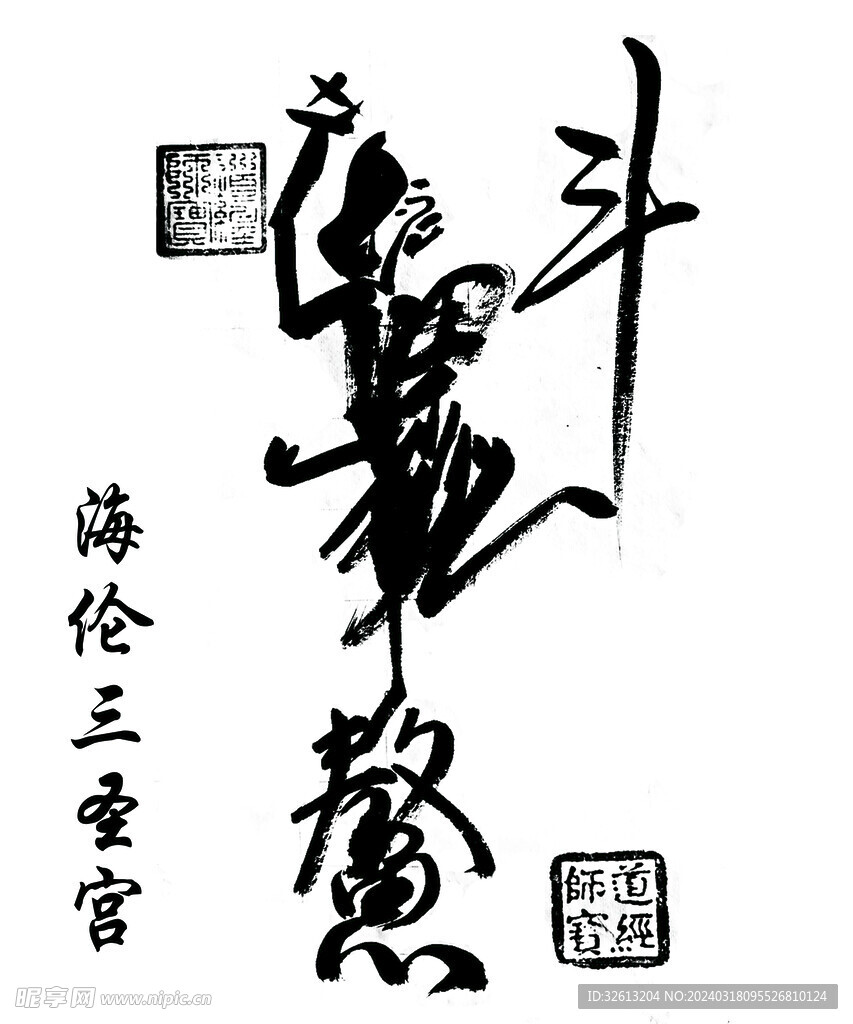 斗
鰲
道經師寶
海伦三圣宫
道經
師寶
昵享网 www.nipic.cn
ID:32613204 NO:20240318095526810124